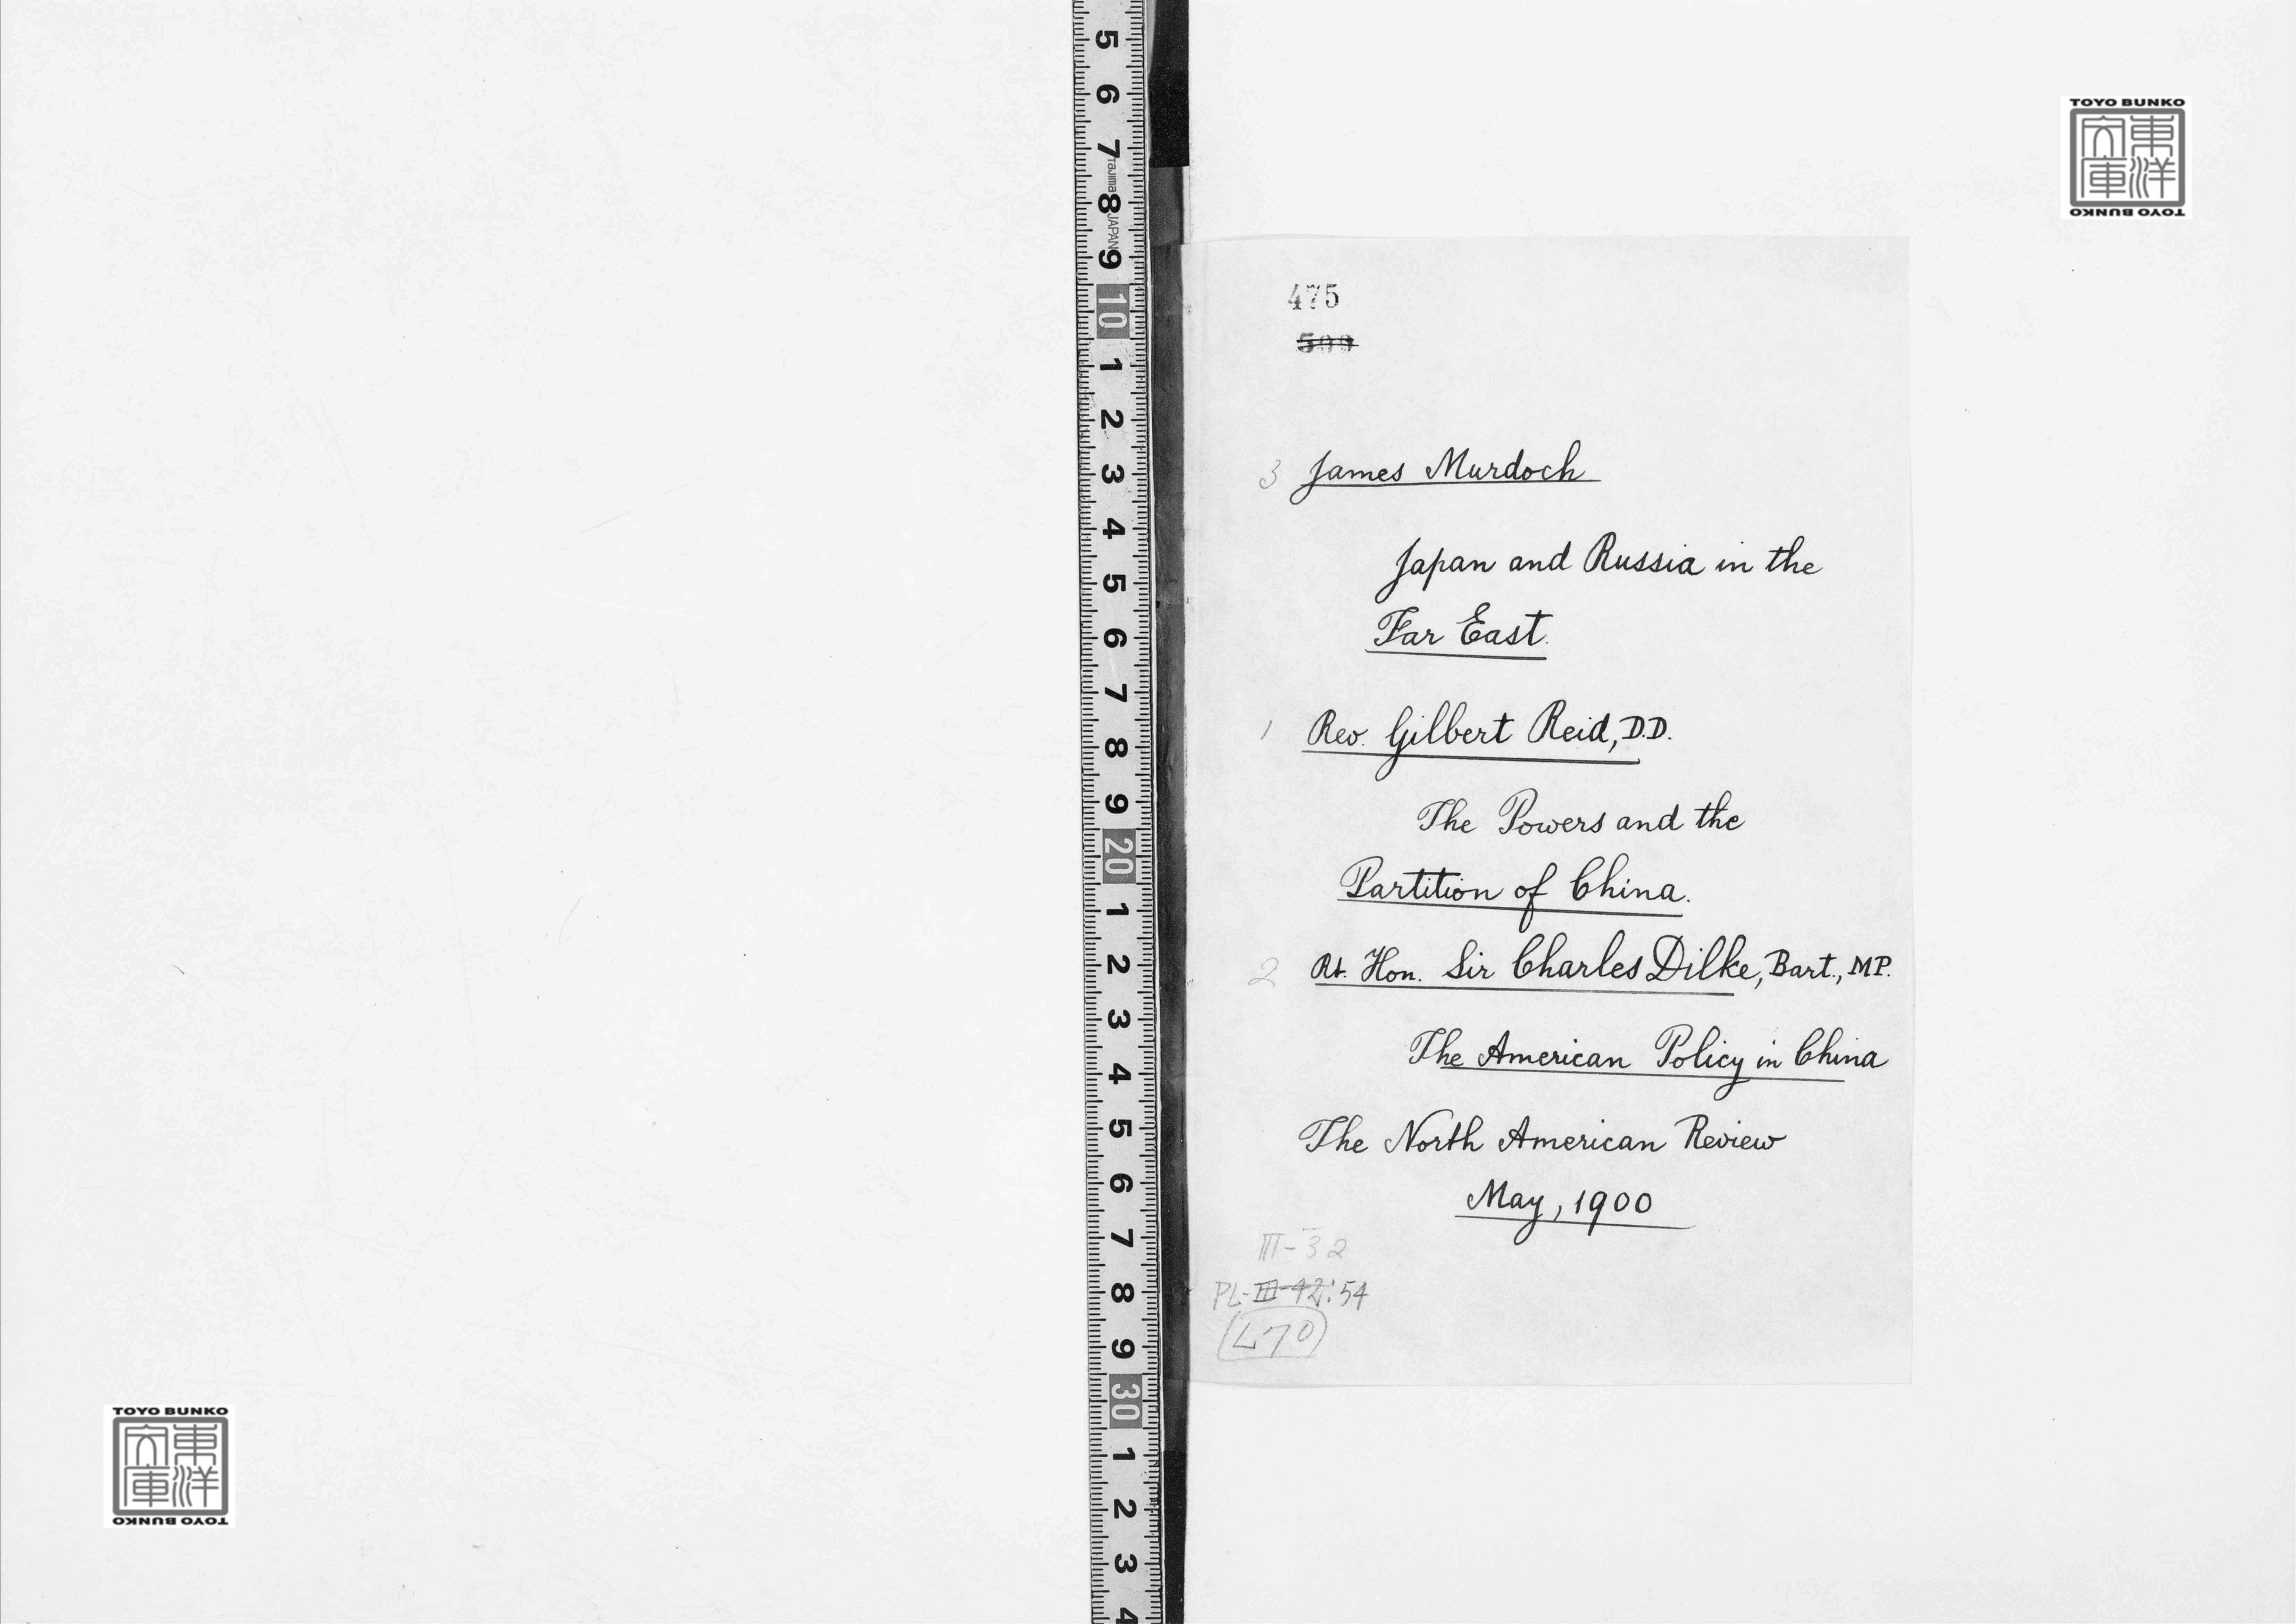 5
6
7
Tajima
8
JAPAN
9
10
1
2
3
4
5
6
7
8
9
20
1
2
3
4
5
6
7
8
9
30
1
2
3
4
TOYO BUNKO
東洋
文庫
TOYO BUNKO
475
3 James Murdoch
Japan and Russia in the
Far East.
1 Rev. Gilbert Reid, D.D.
The Powers and the
Partition of China.
2 Rt. Hon. Sir Charles Dilke, Bart., M.P.
The American Policy in China
The North American Review
May, 1900
III-32
PL-III-42:54
(470)
TOYO BUNKO
東洋
文庫
TOYO BUNKO